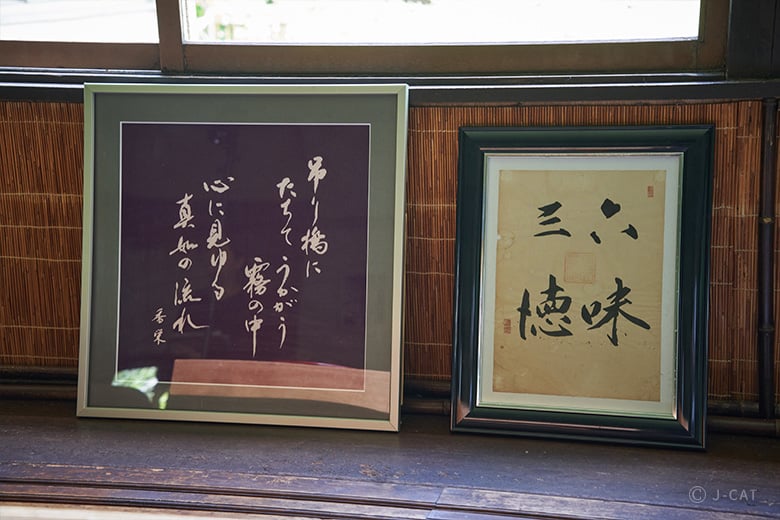 吊り橋に
たちて うかがう
霧の中
心に見ゆる
真如の流れ
香栄
六味
三徳
© J-CAT